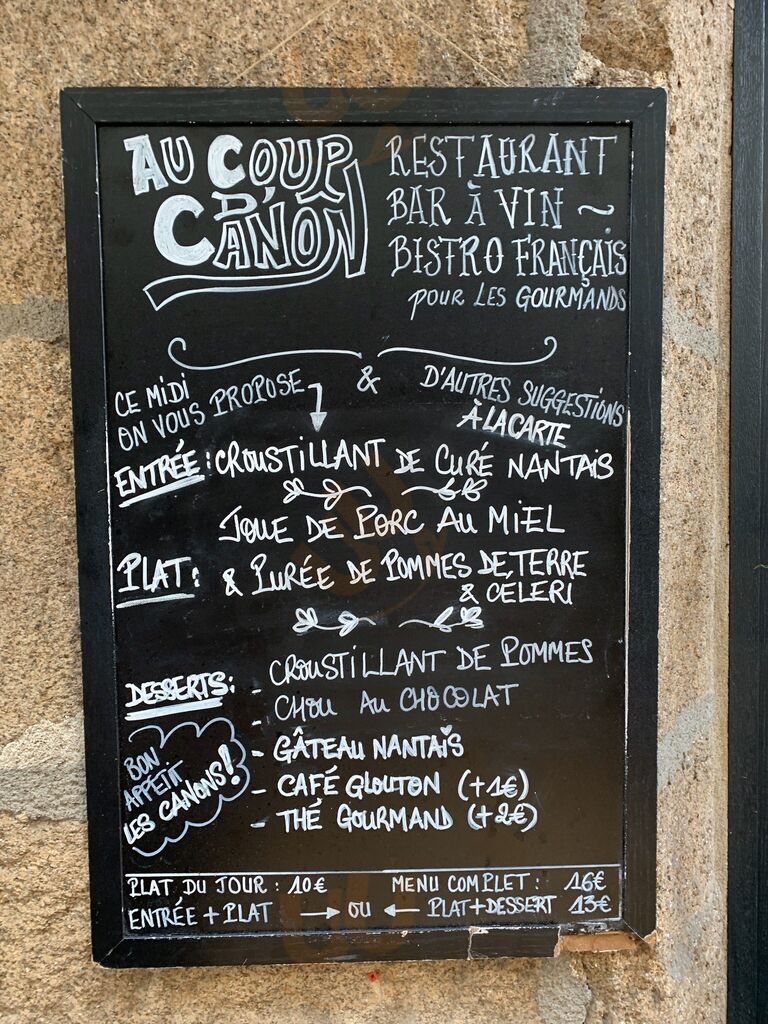 AU COUP
D'
CANON
RESTAURANT
BAR À VIN ~
BISTRO FRANÇAIS
POUR LES GOURMANDS
CE MIDI
ON VOUS PROPOSE
&
D'AUTRES SUGGESTIONS
À LA CARTE
ENTRÉE : CROUSTILLANT DE CURÉ NANTAIS
JOUE DE PORC AU MIEL
PLAT : & PURÉE DE POMMES DE TERRE
& CÉLERI
DESSERTS : - CROUSTILLANT DE POMMES
- CHOU AU CHOCOLAT
- GÂTEAU NANTAIS
- CAFÉ GLOUTON (+1€)
- THÉ GOURMAND (+2€)
BON
APPÉTIT
LES CANONS !
PLAT DU JOUR : 10€ MENU COMPLET : 16€
ENTRÉE + PLAT → OU ← PLAT+DESSERT 13€